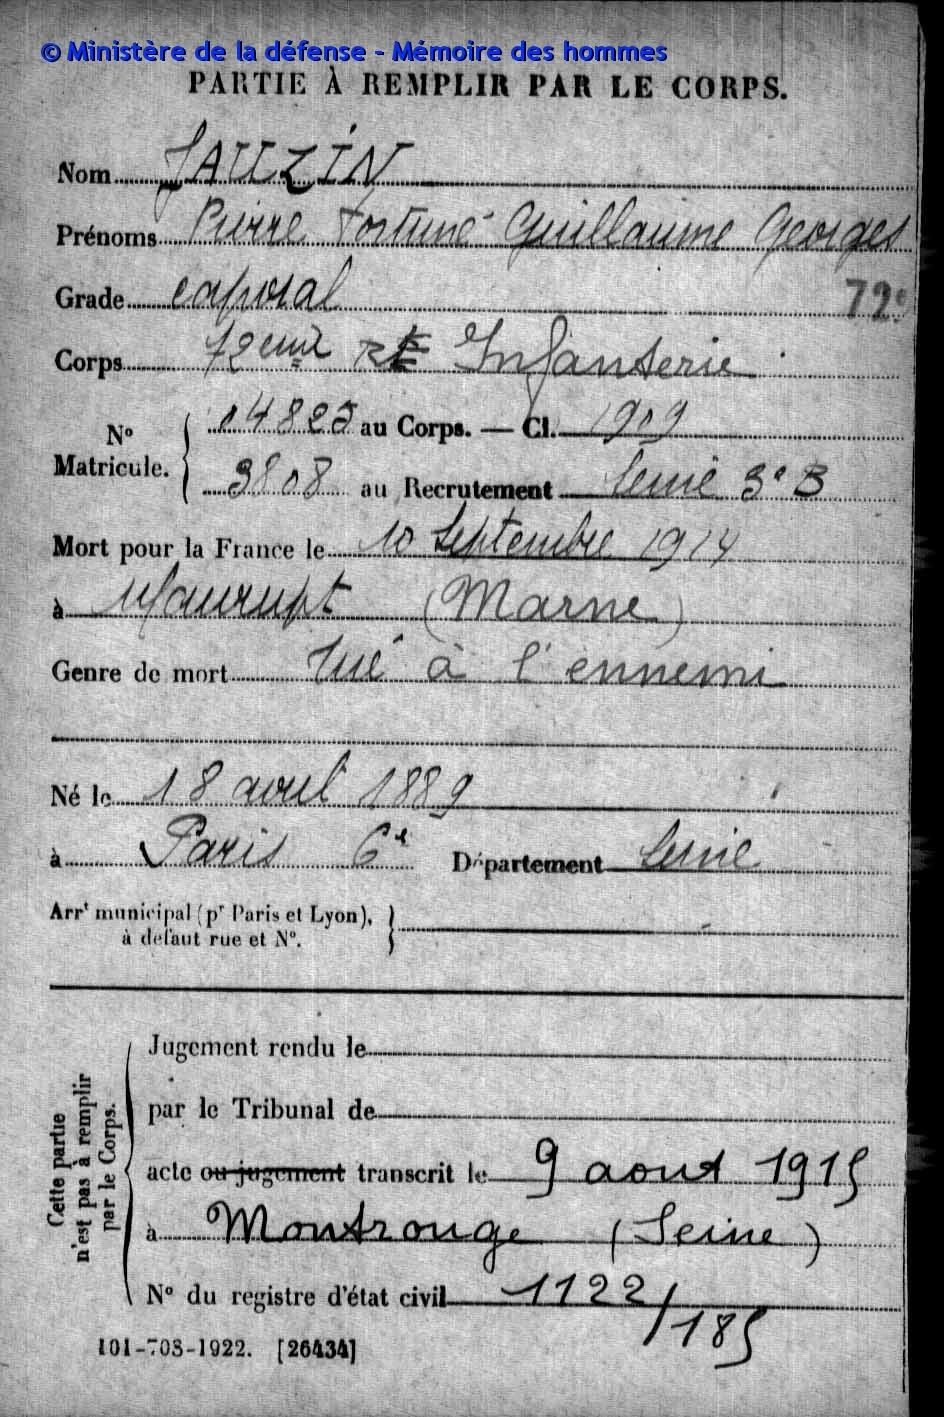 © Ministère de la défense - Mémoire des hommes
PARTIE À REMPLIR PAR LE CORPS.
Nom JAUZIN
Prénoms Pierre Fortuné Guillaume Georges
Grade caporal 72e
Corps 72eme Rt Infanterie
N° Matricule. 04825 au Corps. — Cl. 1909
3808 au Recrutement Seine 3e B
Mort pour la France le 10 Septembre 1914
à Maurupt (Marne)
Genre de mort Tué à l'ennemi
Né le 18 avril 1889
à Paris 6e Département Seine
Arrt municipal (pr Paris et Lyon),
à défaut rue et N°.
Cette partie n'est pas à remplir par le Corps.
Jugement rendu le
par le Tribunal de
acte ou jugement transcrit le 9 aout 1915
à Montrouge (Seine)
N° du registre d'état civil 1122/185
101-708-1922. [26434]